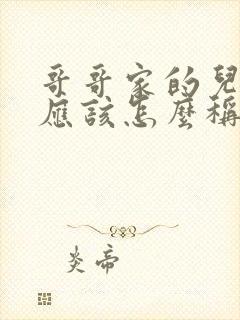 哥哥家的兒
應該怎麼稱
炎帝